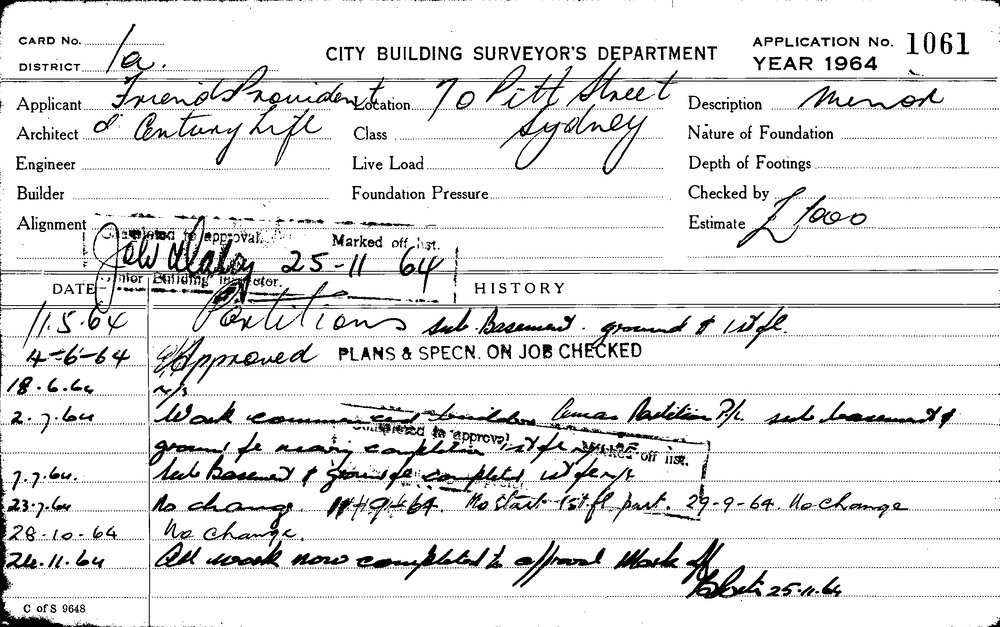 CARD No. 1a.
DISTRICT
CITY BUILDING SURVEYOR'S DEPARTMENT
APPLICATION No. 1061
YEAR 1964
Applicant Friends Provident
Location 70 Pitt Street
Description Minor
Architect & Century Life
Class Sydney
Nature of Foundation
Engineer
Live Load
Depth of Footings
Builder
Foundation Pressure
Checked by
Alignment
Estimate £1000
Completed to approval.
Marked off list.
25-11 64
Senior Building Inspector.
DATE
HISTORY
11.5.64 Partitions sub Basement. ground & 1st fl.
4-6-64 Approved PLANS & SPECN. ON JOB CHECKED
18.6.64 n/s
2.7.64 Work commenced builders Partition P/L sub basement &
ground fl nearing completion 1st fl
Completed to approval
Marked off list.
7.7.64. Sub Basement & ground fl completed 1st fl n/s
23.7.64 No change. 11-9-64. No start 1st fl part. 29-9-64. No change
28-10-64 No change.
24.11.64 All work now completed to approval Mark off
25.11.64
C of S 9648